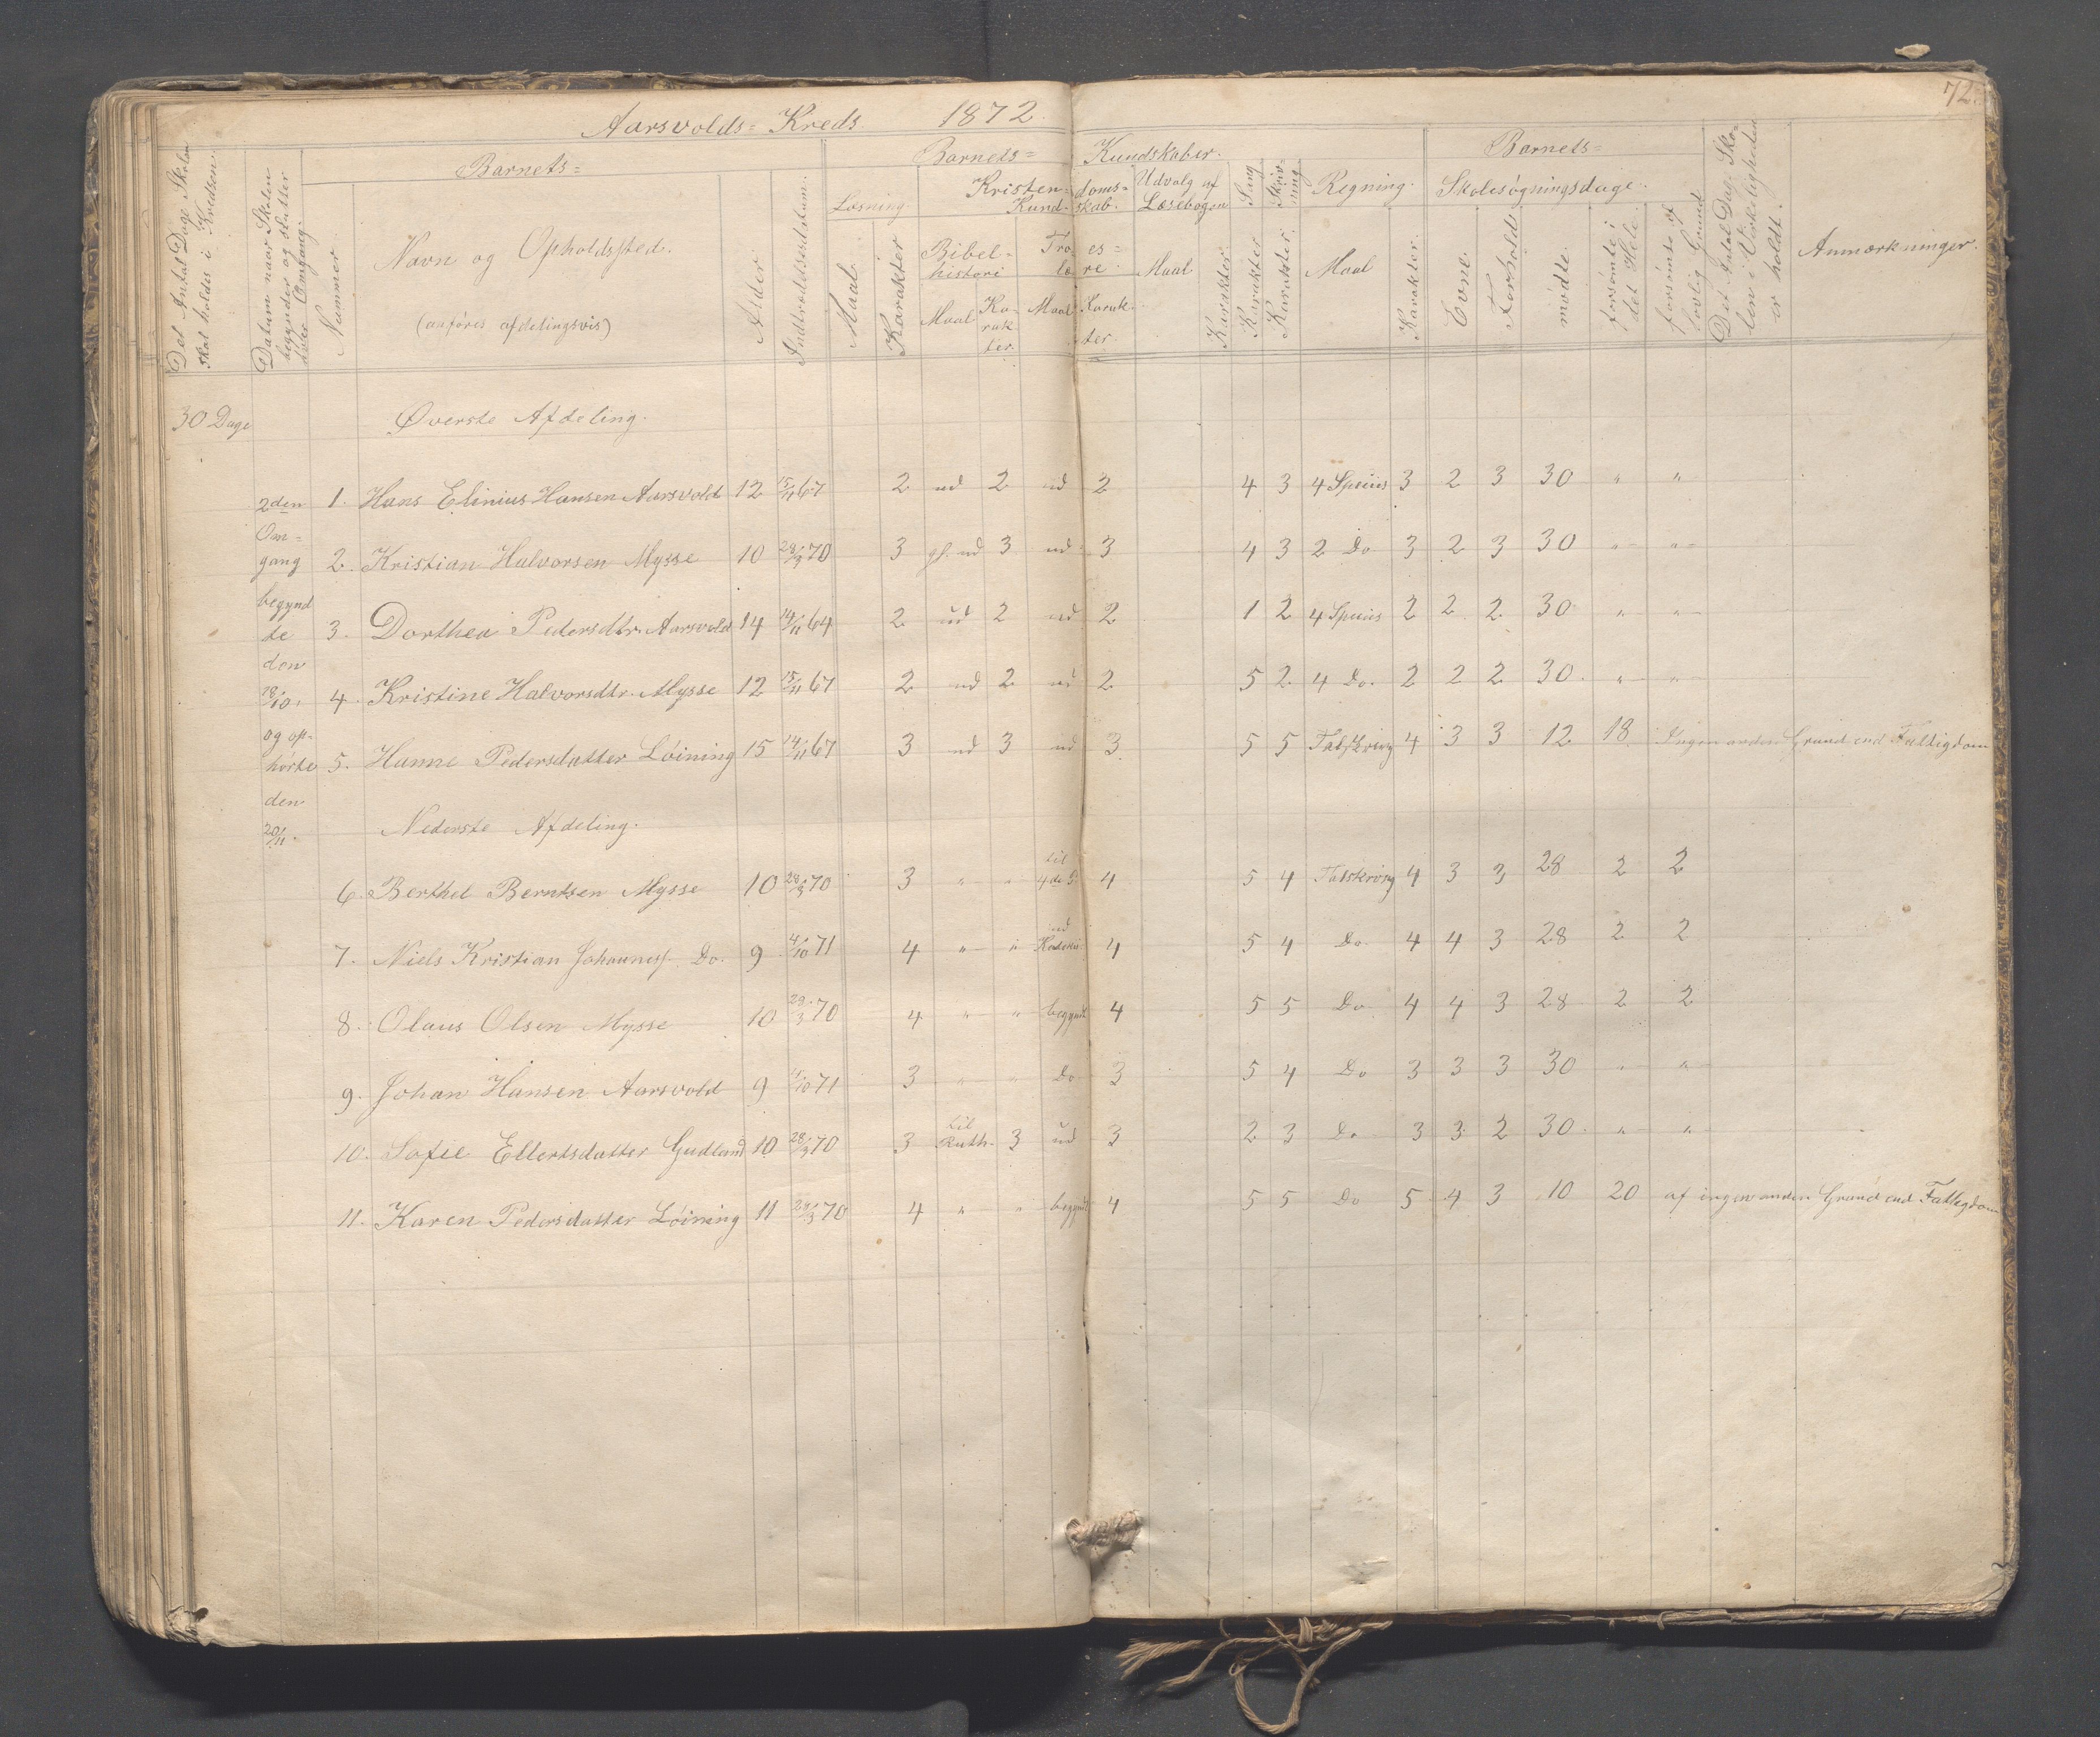 72.
Aarsvolds= Kreds 1872.
Det Antal Dage Skolen skal holdes i Kredsen.
Datum naar Skolen begynder og slutter hver Omgang.
Barnets=
Nummer
Navn og Opholdssted.
(anføres afdelingsvis)
Alder
Indtrædelsesdatum.
Barnets= Kundskaber.
Læsning.
Maal
Karakter
Kristen= doms=
Kund- skab.
Bibel=
historie
Maal
Ka-
rak
ter.
Tro es=
læ re.
Maal Karak-
ter.
Udvalg af
Læsebogen
Maal
Karakter
Sang
Karakter
Skriv-
ning
Karakter.
Regning.
Maal
Karakter.
Barnets=
Skolesøgningsdage.
Evne.
Forhold
mødte.
forsømte i
det Hele.
forsømte af
lovlig Grund
Det Antal Dage Sko-
len i Virkeligheden
er holdt.
Anmærkninger.
30 Dage
Øverste Afdeling.
2den 1. Hans Elinius Hansen Aarsvold 12 15/11 67 2 ud 2 ud 2 4 3 4 Species 3 2 3 30 " "
Om=
gang 2. Kristian Halvorsen Mysse 10 28/3 70 3 gl. ud 3 ud 3 4 3 2 Do 3 2 3 30 " "
begynd
te 3. Dorthea Pedersdtr. Aarsvold 14 14/11 64 2 ud 2 ud 2 1 2 4 Species 2 2 2 30 " "
den
18/10. 4. Kristine Halvorsdtr. Mysse 12 15/11 67 2 ud 2 ud 2 5 2 4 Do. 2 2 2 30 " "
og op-
hørte 5. Hanne Pedersdatter Løining 15 14/11 67 3 ud 3 ud 3 5 5 Talskrivng 4 3 3 12 18 Ingen anden Grund end Fattigdom
den
20/11. Nederste Afdeling.
6. Berthel Berntsen Mysse 10 28/3 70 3 " " til 4de 4 5 4 Talskrivng 4 3 3 28 2 2
7. Niels Kristian Johannes. Do. 9 4/10 71 4 " " ud 4 5 4 Do 4 4 3 28 2 2
8. Olaus Olsen Mysse 10 29/3 70 4 " " begyndt 4 5 5 Do 4 4 3 28 2 2
9. Johan Hansen Aarsvold 9 /10 71 3 " " Do 3 5 4 Do 3 3 3 30 " "
10. Sofie Ellertsdatter Gudland 10 28/3 70 3 til Ruth. 3 ud 3 2 3 Do 3 3 2 30 " "
11. Karen Pedersdatter Løining 11 29/3 70 4 " " begyndt 4 5 5 Do 5 4 3 10 20 af ingen anden Grund end Fattigdom